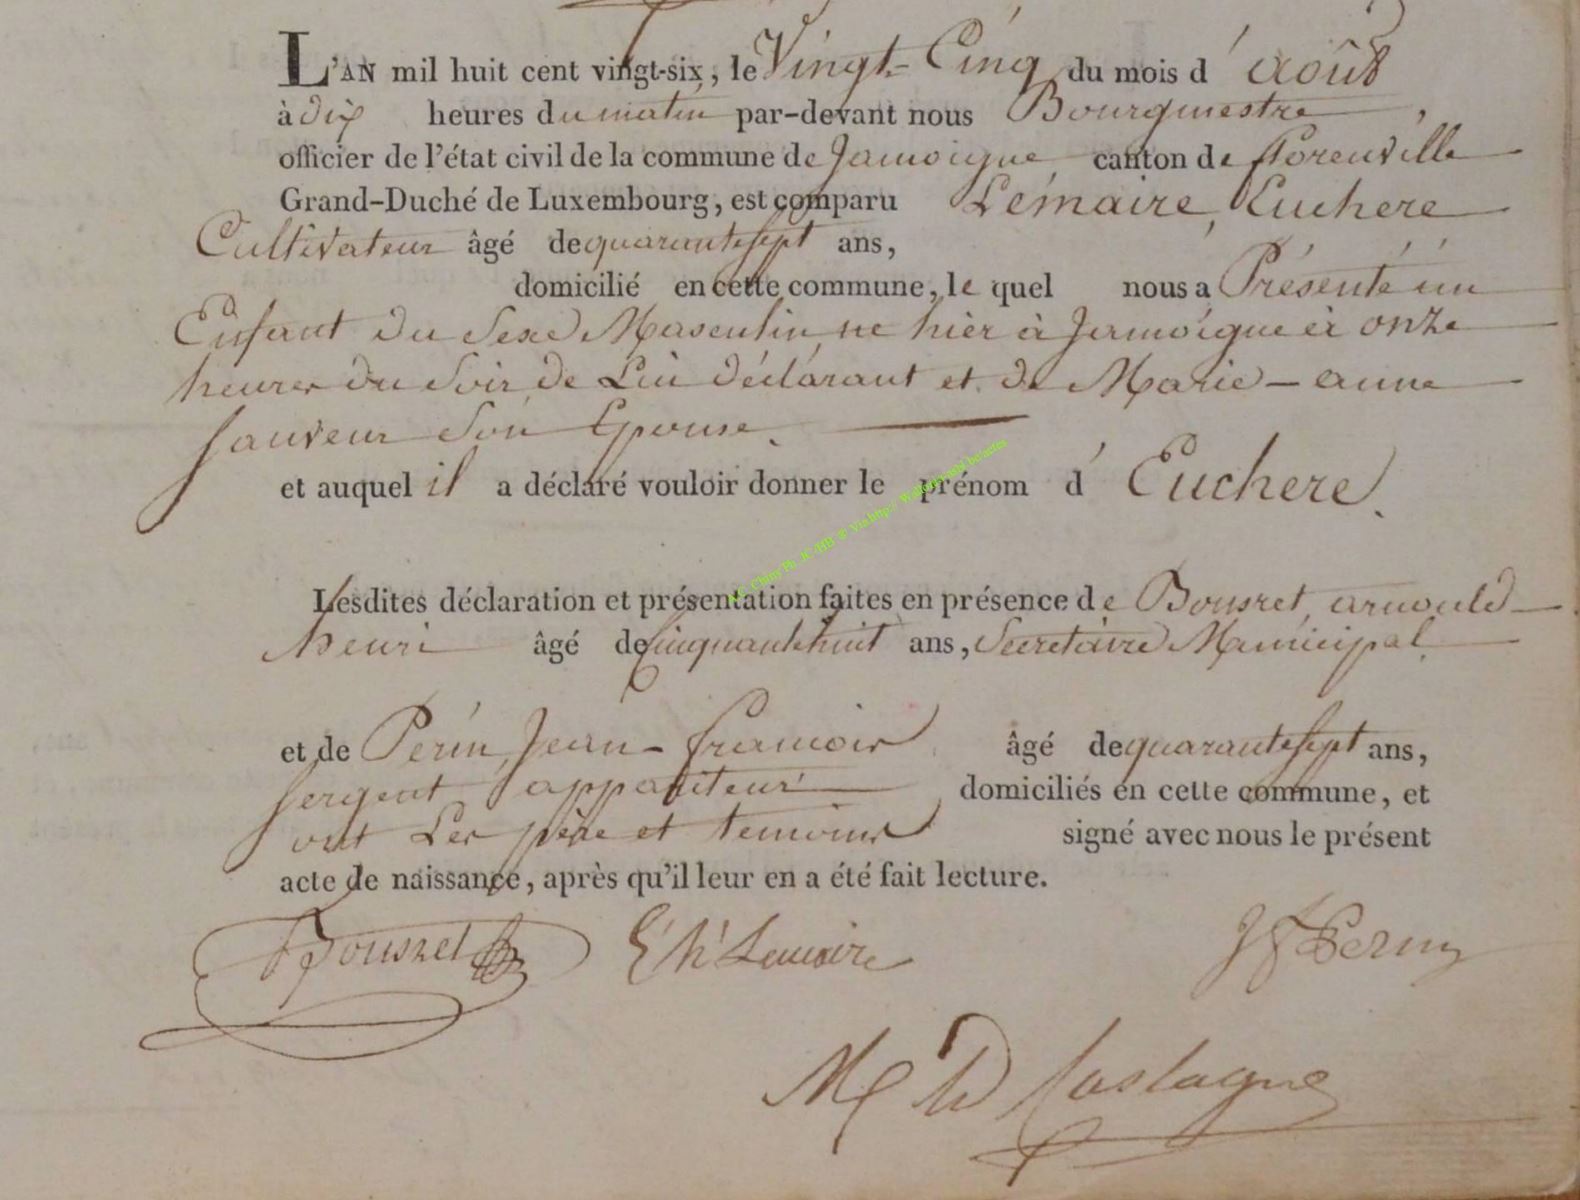 L'AN mil huit cent vingt-six, le Vingt-Cinq du mois d' août
à dix heures du matin par-devant nous Bourgmestre,
officier de l'état civil de la commune de Jamoigne canton de florenville
Grand-Duché de Luxembourg, est comparu Lemaire, Euchere
Cultivateur âgé de quarante sept ans,
domicilié en cette commune, le quel nous a Présenté un
Enfant du Sexe Masculin, né hier à Jamoigne à onze
heures du Soir, de Lui déclarant et de Marie-anne
Sauveur Son Epouse.
et auquel il a déclaré vouloir donner le prénom d' Euchere.
Lesdites déclaration et présentation faites en présence de Bousret, arnould
henri âgé de Cinquante huit ans, Secretaire Municipal
et de Perin, Jean-françois âgé de quarante sept ans,
Sergent appariteur domiciliés en cette commune, et
ont Les père et temoins signé avec nous le présent
acte de naissance, après qu'il leur en a été fait lecture.
Bousret E h Lemaire J f Perin
M D Castagne